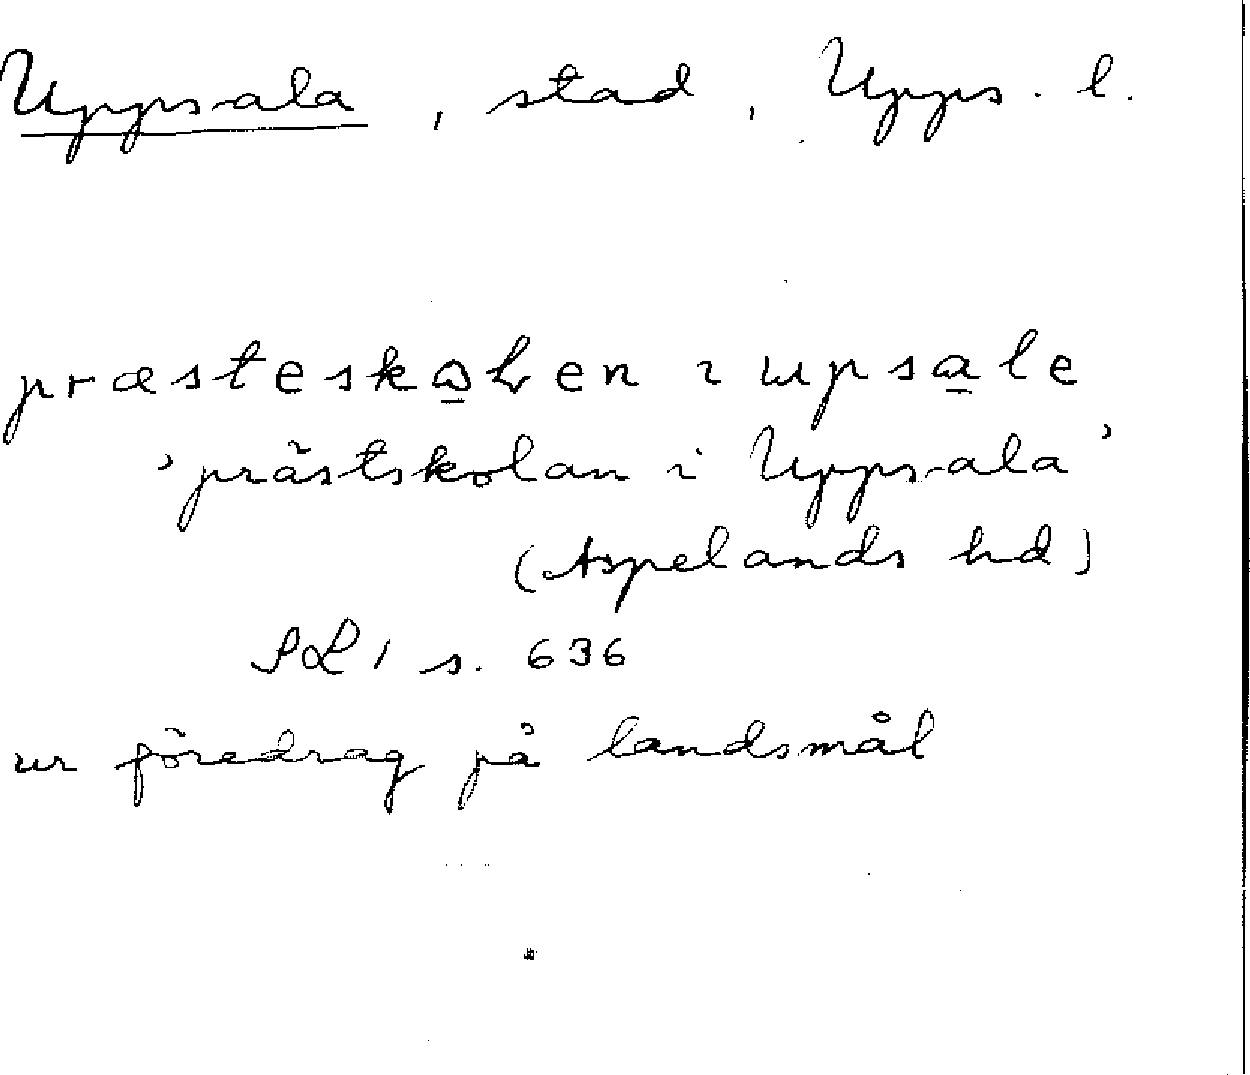 Uppsala, stad, Upps. l.
præsteskɷ̲ɫen ı upsa̲le
'prästskolan i Uppsala'
(Aspelands hd)
SL 1 s. 636
ur föredrag på landsmål